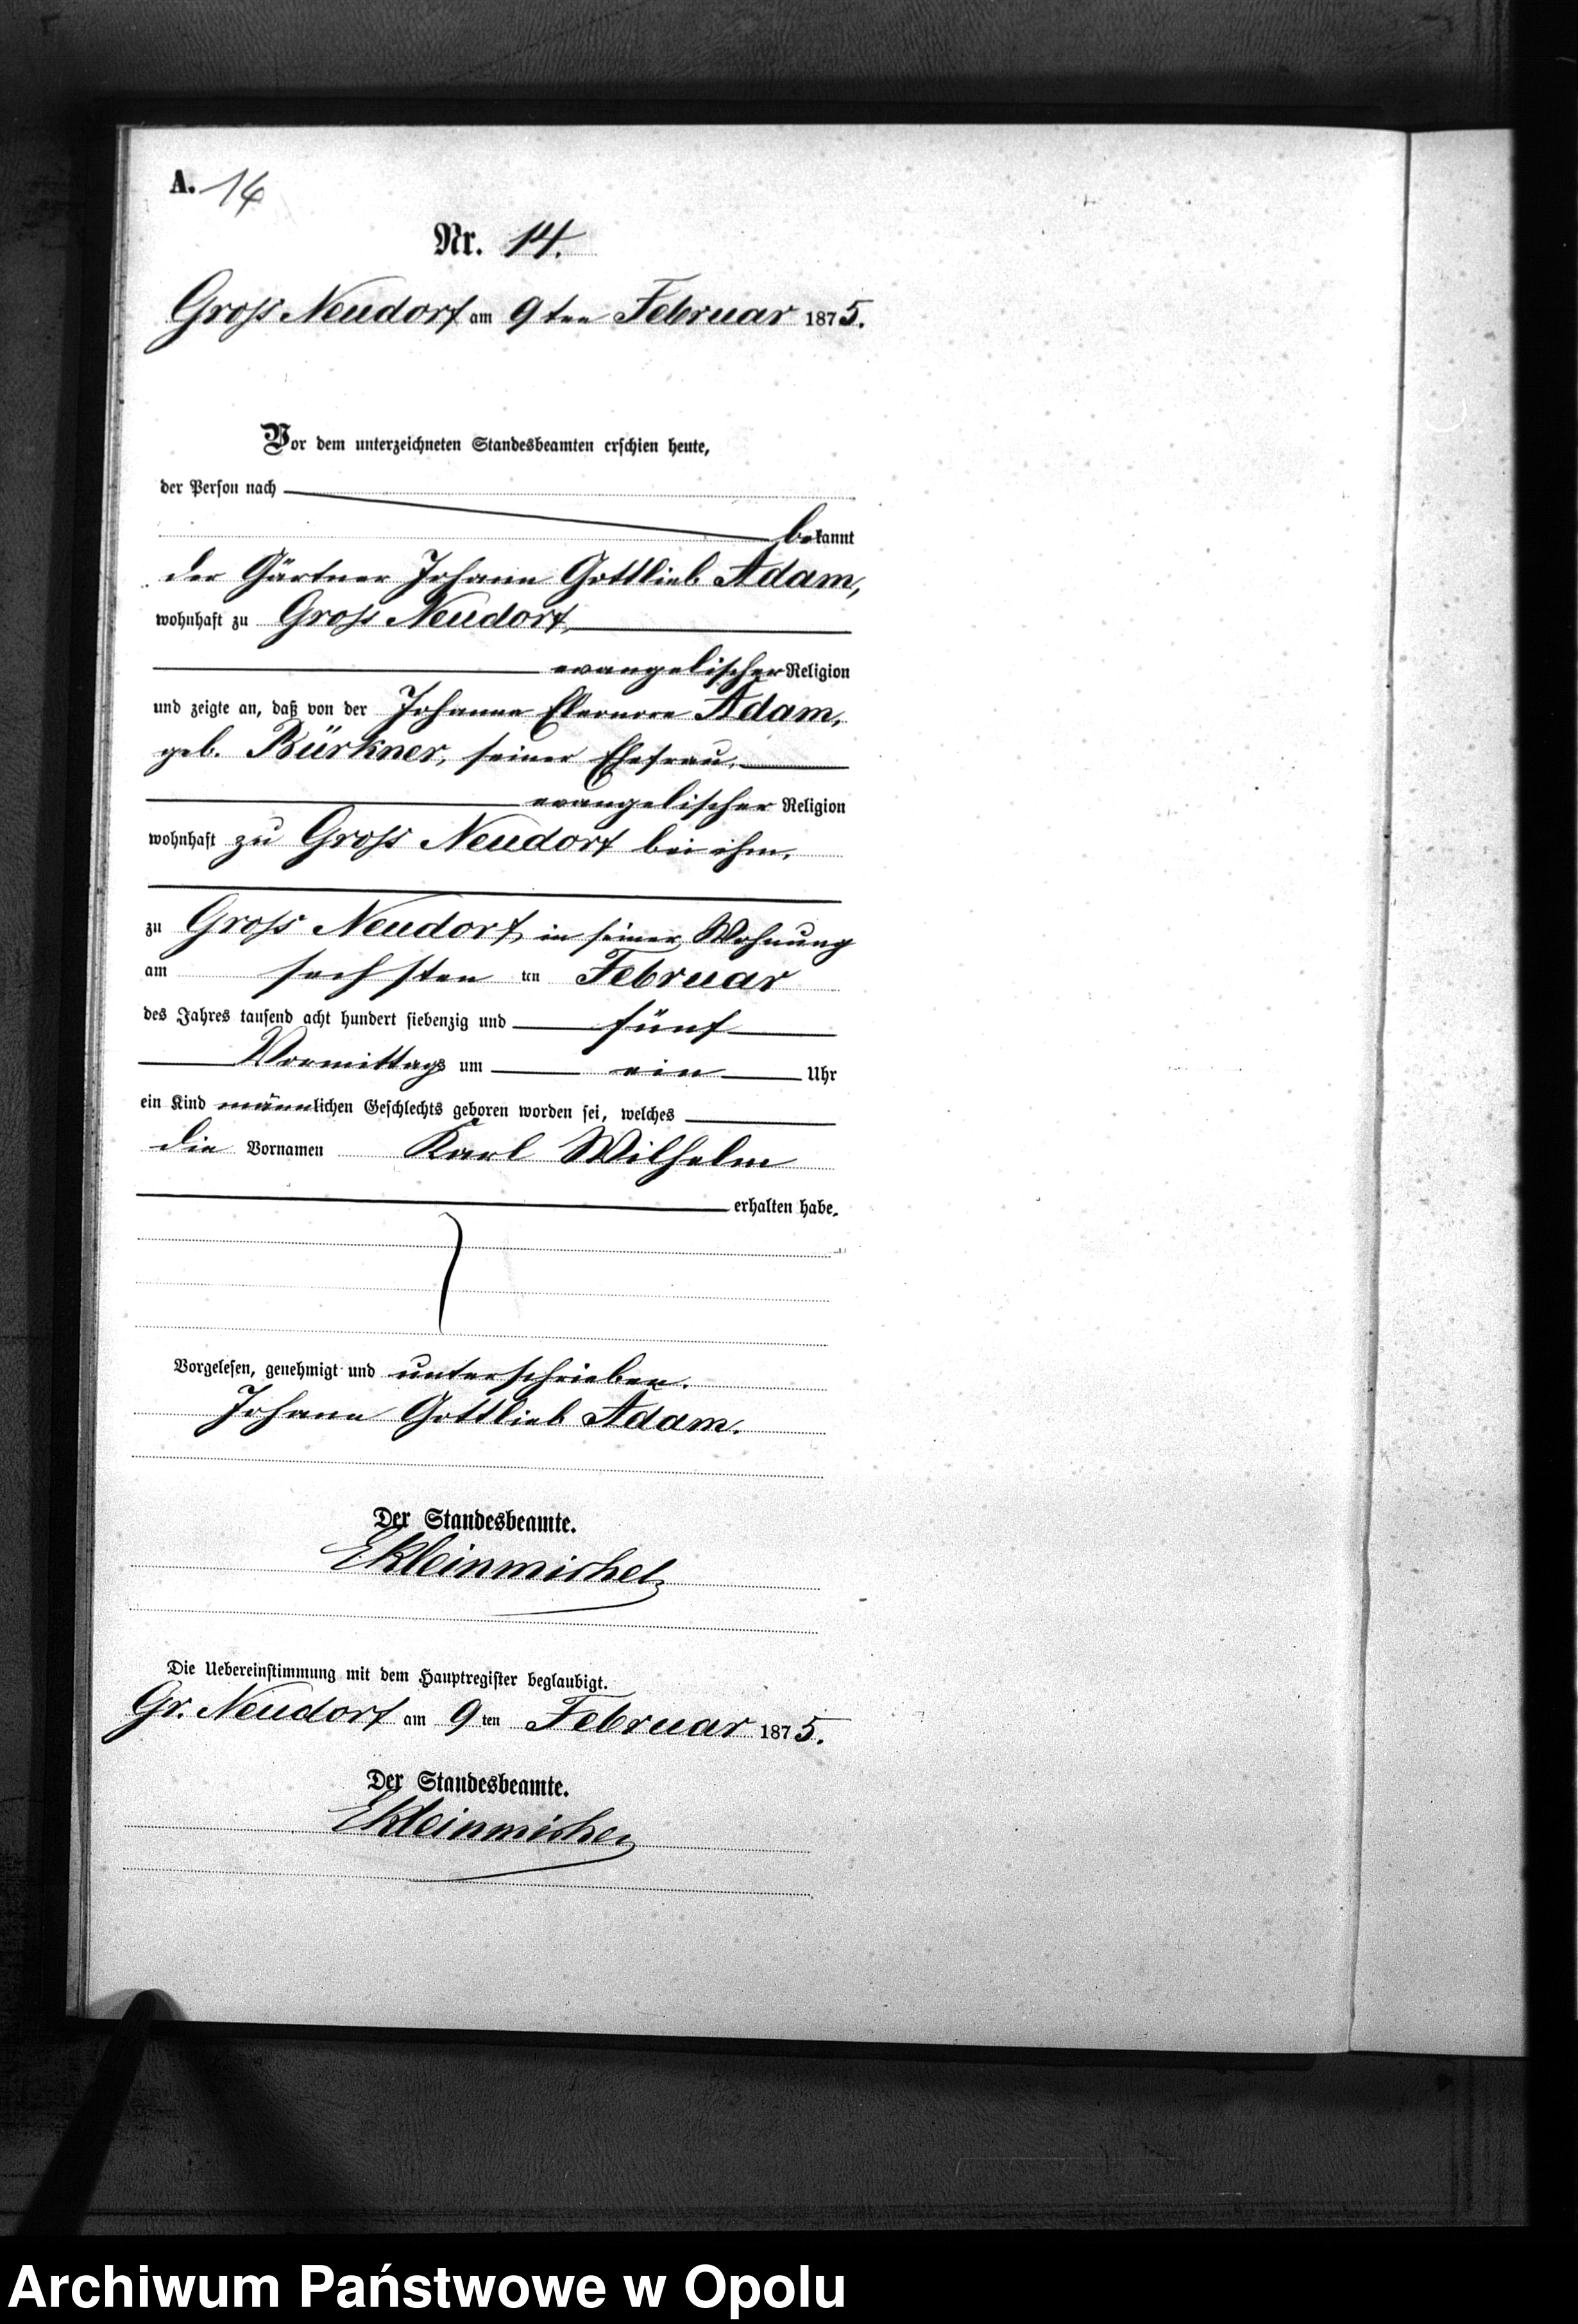 A. 14
Nr. 14.
Gross Neudorf am 9ten Februar 1875.
Vor dem unterzeichneten Standesbeamten erschien heute,
der Person nach
bekannt
der Gärtner Johann Gottlieb Adam,
wohnhaft zu Gross Neudorf,
evangelischer Religion
und zeigte an, daß von der Johanna Eleonore Adam,
geb. Bürkner, seiner Ehefrau,
evangelischer Religion
wohnhaft zu Gross Neudorf bei ihm,
zu Gross Neudorf, in seiner Wohnung
am sechsten ten Februar
des Jahres tausend acht hundert siebenzig und fünf
Vormittags um ein Uhr
ein Kind männlichen Geschlechts geboren worden sei, welches
die Vornamen Karl Wilhelm
erhalten habe.
Vorgelesen, genehmigt und unterschrieben.
Johann Gottlieb Adam.
Der Standesbeamte.
EKleinmichel
Die Uebereinstimmung mit dem Hauptregister beglaubigt.
Gr. Neudorf am 9ten Februar 1875.
Der Standesbeamte.
EKleinmichel
Archiwum Państwowe w Opolu